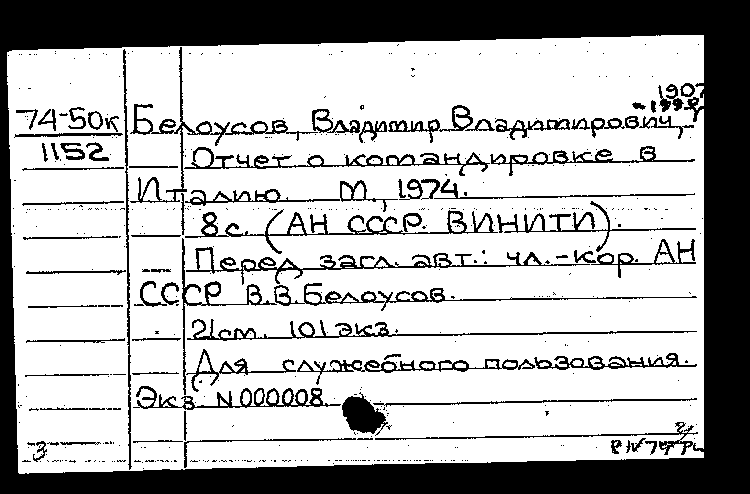 1907
74-50к Белоусов, Владимир Владимирович,
1152 Отчет о командировке в
Италию. М., 1974.
8 с. (АН СССР. ВИНИТИ).
Перед загл. авт.: чл.-кор. АН
СССР В.В. Белоусов.
21см. 101 экз.
Для служебного пользования.
Экз. N 000008.
3